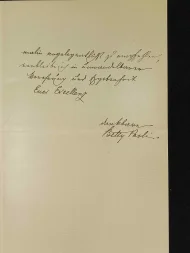 meine angelegentlichst zu empfehlen,
verbleibe ich in unwandelbarer
Verehrung und Ergebenheit
Euer Excellenz
dankbare
Betty Paoli